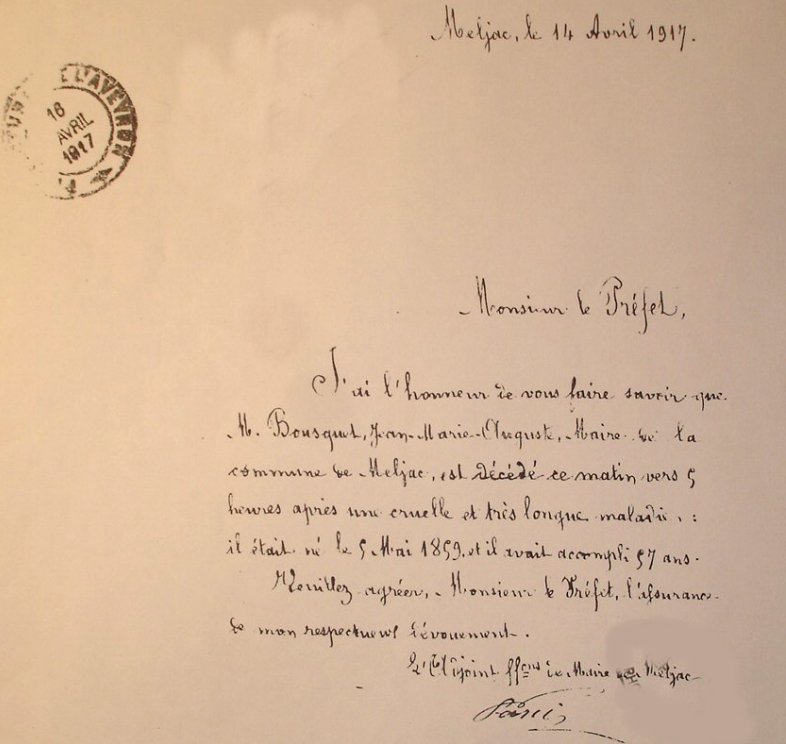 Meljac, le 14 Avril 1917.
DE L'AVEYRON
16
AVRIL
1917
Monsieur le Préfet,
J'ai l'honneur de vous faire savoir que
M. Bousquet, Jean-Marie-Auguste, Maire de la
commune de Meljac, est décédé ce matin vers 5
heures après une cruelle et très longue maladie. :
il était né le 5 Mai 1859, et il avait accompli 57 ans.
Veuillez agréer, Monsieur le Préfet, l'assurance
de mon respectueux dévouement.
L'Adjoint ff.ons de Maire de Meljac